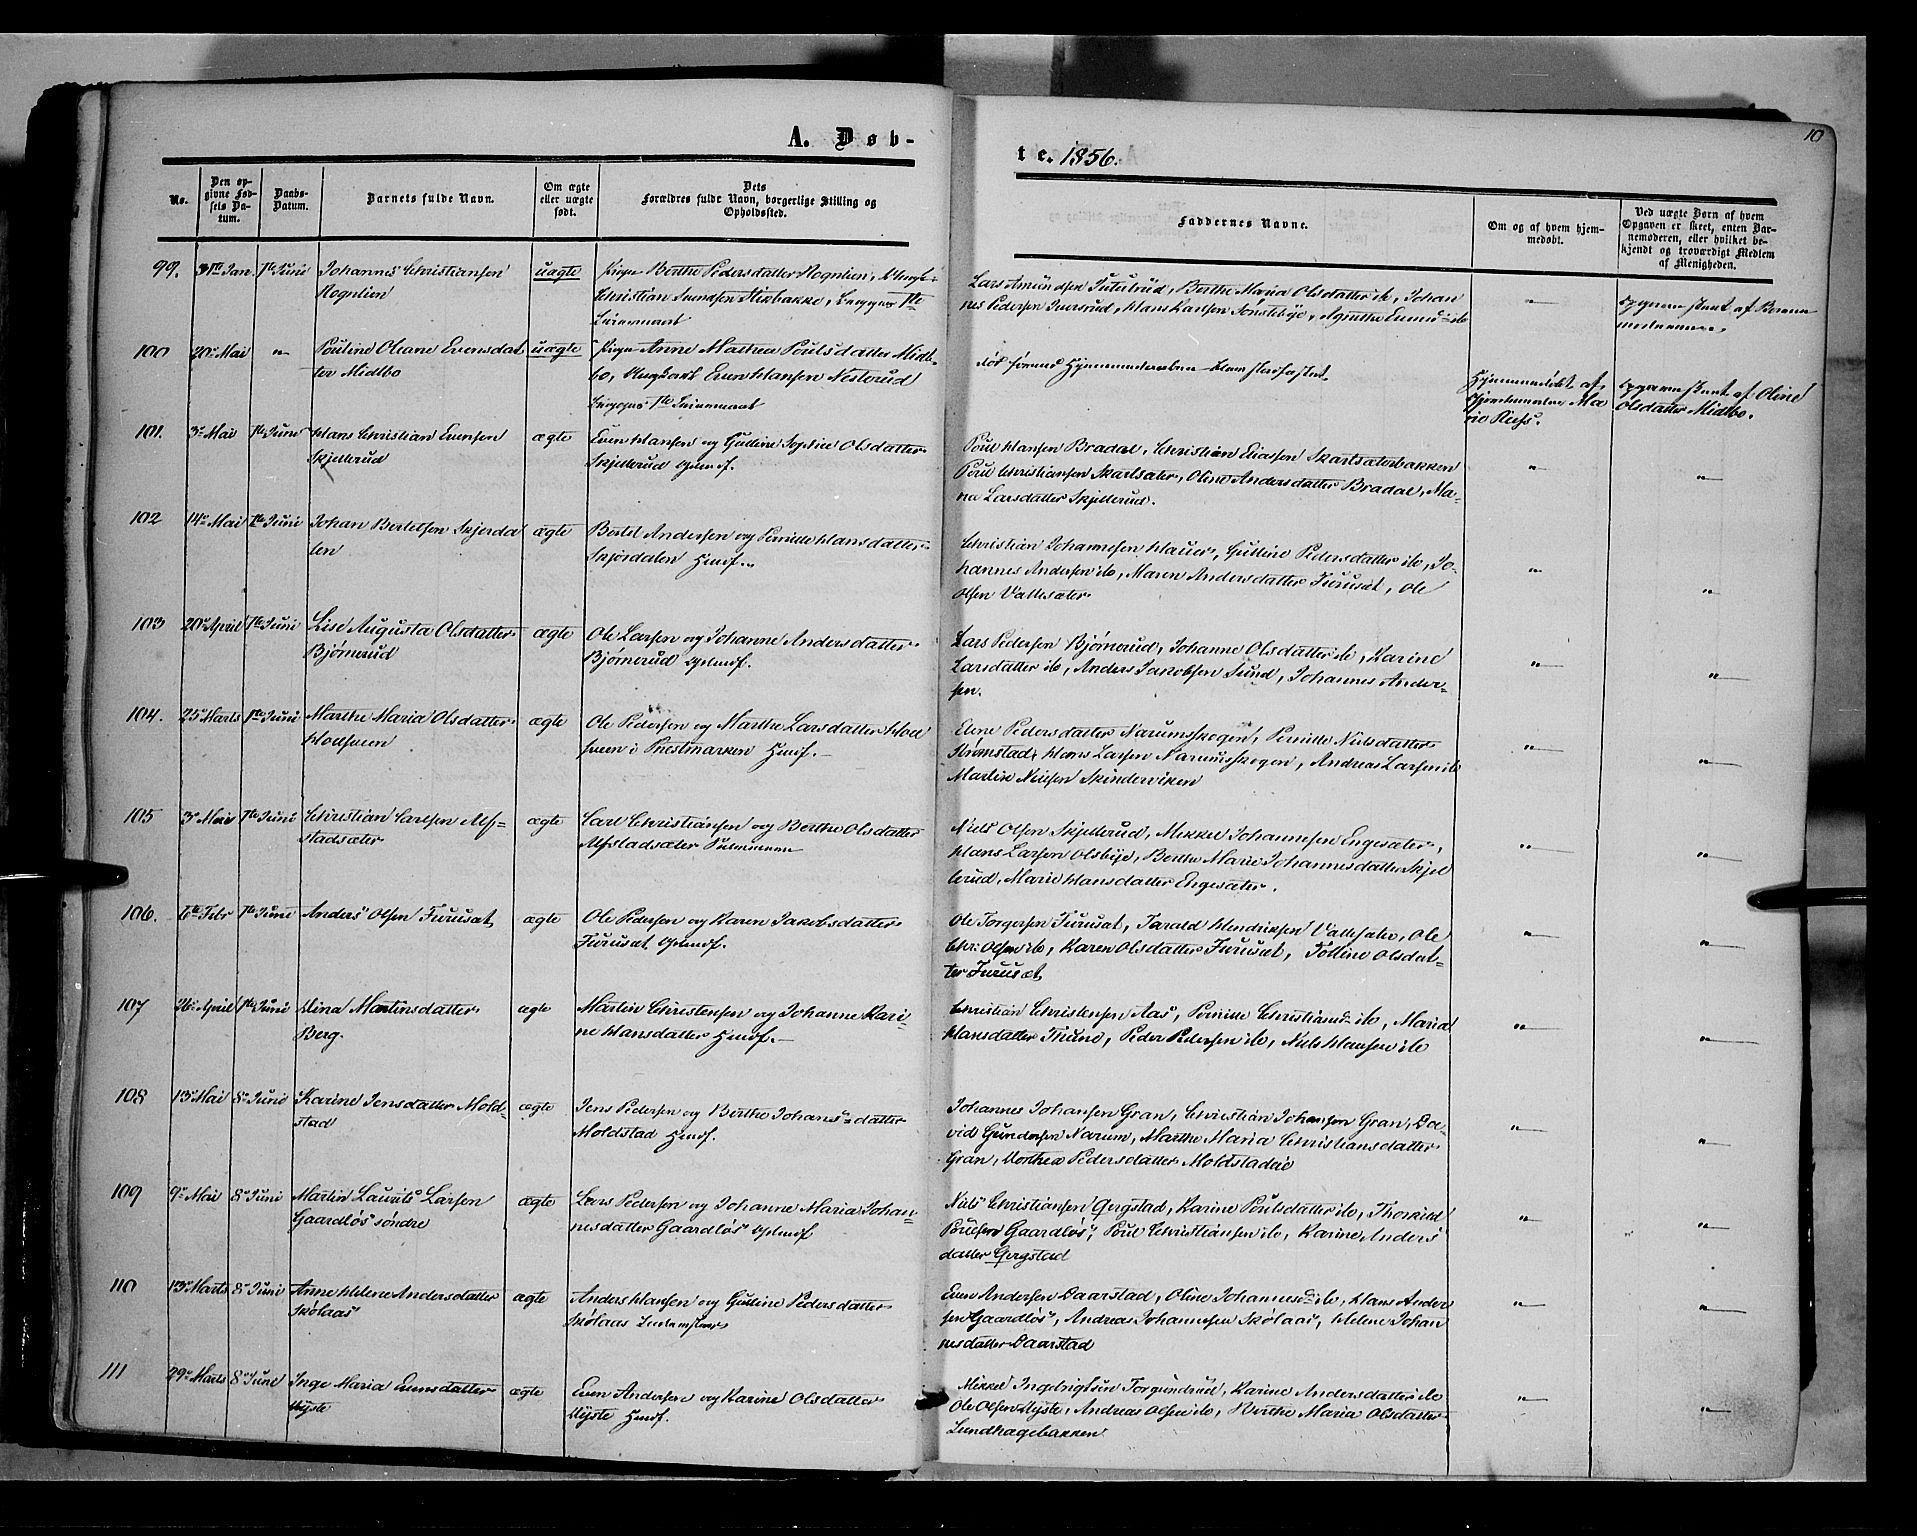 A. Døb-
te. 1856.
10
No.
Den op-
givne Fød-
sels Da-
tum.
Daabs-
Datum.
Barnets fulde Navn.
Om ægte
eller uægte
født.
Dets
Forældres fulde Navn, borgerlige Stilling og
Opholdssted.
Faddernes Navne.
Om og af hvem hjem-
medøbt.
Ved uægte Børn af hvem
Opgaven er skeet, enten Bar-
nemoderen, eller hvilket be-
kjendt og troværdigt Medlem
af Menigheden.
99. 31te Jan. 1te Juni Johannes Christiansen uægte Pige Berthe Pedersdatter Rognlien,
Rognlien Christian Svendsen Stixbakke, Begges 1te
Leiermaal
Lars Amundsen Tuterud, Berthe Maria Olsdatter ib, Johan
nes Pedersen Iversrud, Hans Karlsen Tønsteby, Agnethe ib
"
Opgaven skeet af Barne
moderen.
100 20de Mai " Pouline Oleane Evensdat uægte Pige Anne Mathea Poulsdatter Midt-
ter Midtbo bo, Even Hansen Nesterud
Begges 1te Leiermaal
Død førend
Hjemmedøbt af
Ma
rie
Opgaven skeet af Oline
Olsdatter Midtbo.
101. 3de Mai 1te Juni Hans Christian Evensen ægte Even Hansen og Gulline Sophie Olsdatter
Skjellerud Skjellerud Gmdf.
Poul Hansen Bradal, Christian Eliassen
Poul Christiansen, Oline Andersdatter Bradal, Ma-
ria Larsdatter Skjellerud.
" "
102 14de Mai 1te Juni Johan Bertelsen Skjerda ægte Bertel Andersen og Pernille Hansdatter
len Skjerdalen Husf.
Christian Johannesen Hauer, Gulline Pedersdatter ib, Jo-
hannes Andersen ib, Maren Andersdatter Furuset, Ole
Olsen Vallesæter
" "
103 20de April 1te Juni Lise Augusta Olsdatter ægte Ole Larsen og Johanne Andersdatter
Bjørnerud Bjørnerud Gmdf.
Lars Pedersen Bjørnerud, Johanne Olsdatter ib, Karine
Larsdatter ib, Anders Jacobsen Sund, Johannes Ander-
sen.
" "
104. 25de Marts 1te Juni Marthe Maria Olsdatter ægte Ole Pedersen og Marthe Larsdatter Hol
i Prestmarken Husf.
Elene Pedersdatter Narumskogen, Pernille Nilsdatter
Strømstad, Hans Larsen Narumskogen, Andreas Larsen ib
Martin Nielsen Skinderviken
" "
105 3de Mai 1te Juni Christian Carlsen Alf- ægte Carl Christiansen og Berthe Olsdatter
stadsæter Alfstadsæter
Niels Olsen Skjellerud, Mikkel Johannesen Engesæter,
Hans Larsen Olsbye, Berthe Marie Johannesdatter Skjel
lerud, Marie Hansdatter Engesæter.
" "
106. 6te Febr 1te Juni Anders Olsen Furuset ægte Ole Pedersen og Karen Jakobsdatter
Furuset Gmdf.
Ole Torgersen Furuset, Harald Hendriksen Vallesæter, Ole
Chr: Olsen ib, Karen Olsdatter Furuset, Olsdat-
ter Furuset
" "
107 26de April 1te Juni Dina Martinsdatter ægte Martin Christensen og Johanne Kari-
Berg. ne Hansdatter Husf.
Christian Christensen Aas, Pernille Christiansd ib, Maria
Hansdatter Thune, Peder Pedersen ib, Niels Hansen ib
" "
108 13de Mai 8de Juni Karine Jensdatter Mold- ægte Jens Pedersen og Berthe Johansdatter
stad Moldstad Husf.
Johannes Johansen Gran, Christian Johansen Gran, Da-
vid Gundersen Narum, Marthe Maria Christiansdatter
Gran, Dorthea Pedersdatter Moldstadeie
" "
109 9de Mai 8de Juni Martin Laurits Larsen ægte Lars Pedersen og Johanne Maria Johan-
Gaardløs søndre nesdatter Gaardløs Gmdf
Niels Christiansen Gergstad, Karine Poulsdatter ib, Thorkild
Poulsen Gaardløs, Poul Christiansen ib, Karine Anders
datter Gergstad
" "
110 13de Marts 8de Juni Anne Helene Andersdatter ægte Anders Hansen og Gulline Pedersdatter
Skølaas Skølaas
Even Andersen Daarstad, Oline Johannesd: ib, Hans Ander
sen Gaardløs, Andreas Johannesen Skølaas, Helene Johan
nesdatter Daarstad
" "
111 29de Marts 8de Juni Inge Maria Evensdatter ægte Even Andersen og Karine Olsdatter
Dyste Dyste Husf.
Mikkel Ingebrigtsen Torgundrud, Karine Andersdatter ib
Ole Olsen Dyste, Andreas Olsen ib, Berthe Maria Olsdatter
Lundhagebakken
" "